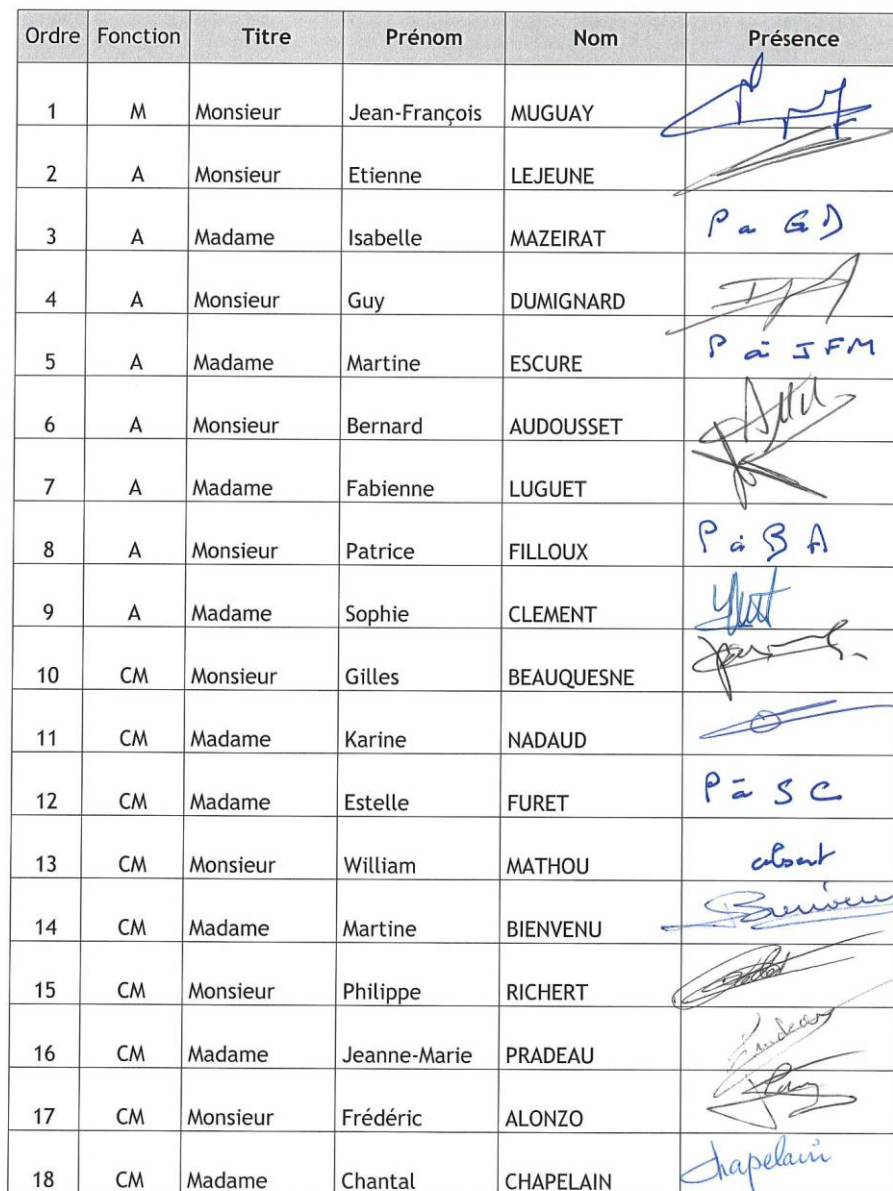 Ordre Fonction Titre Prénom Nom Présence
1 M Monsieur Jean-François MUGUAY
2 A Monsieur Etienne LEJEUNE
3 A Madame Isabelle MAZEIRAT P a GD
4 A Monsieur Guy DUMIGNARD
5 A Madame Martine ESCURE P à JFM
6 A Monsieur Bernard AUDOUSSET
7 A Madame Fabienne LUGUET
8 A Monsieur Patrice FILLOUX P à BA
9 A Madame Sophie CLEMENT
10 CM Monsieur Gilles BEAUQUESNE
11 CM Madame Karine NADAUD
12 CM Madame Estelle FURET P à SC
13 CM Monsieur William MATHOU absent
14 CM Madame Martine BIENVENU Bienvenu
15 CM Monsieur Philippe RICHERT
16 CM Madame Jeanne-Marie PRADEAU Pradeau
17 CM Monsieur Frédéric ALONZO
18 CM Madame Chantal CHAPELAIN Chapelain